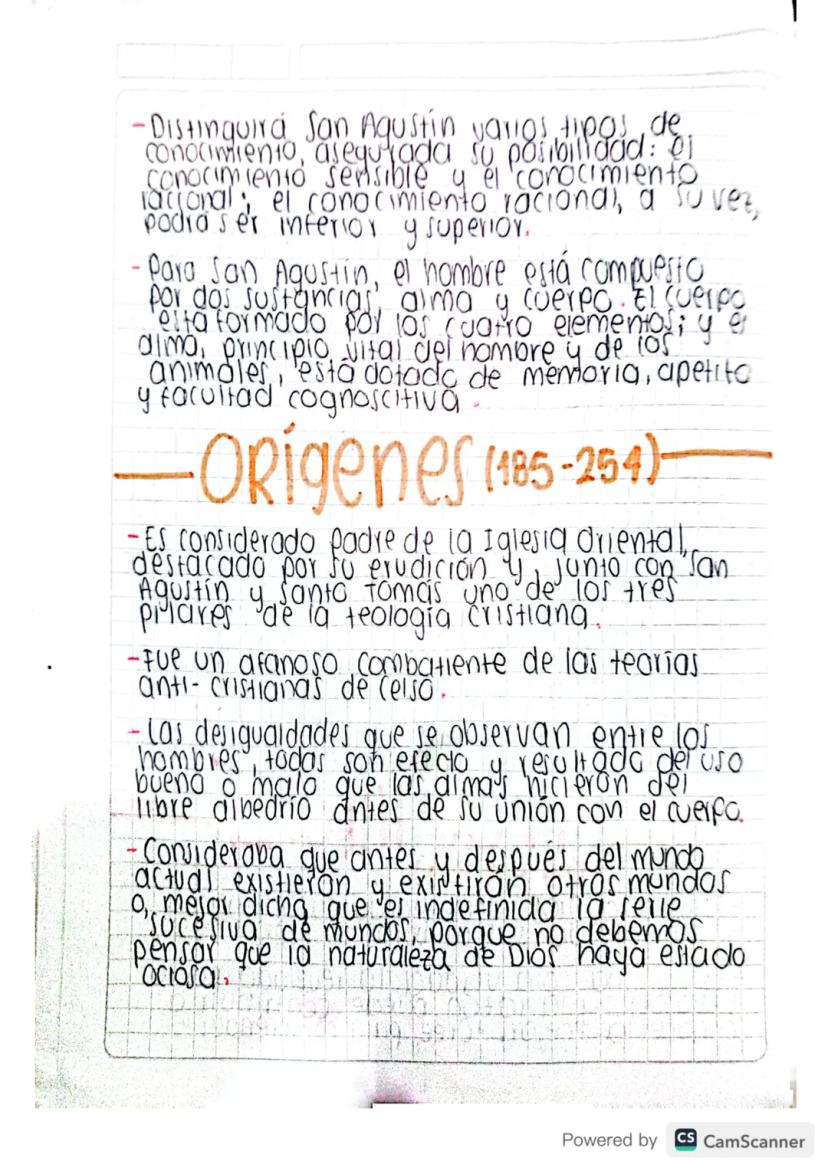 -Distinguirá San Agustín varios tipos de
conocimiento, asegurada su posibilidad: el
conocimiento sensible y el conocimiento
racional; el conocimiento racional, a su vez,
podrá ser inferior y superior.
-Para San Agustín, el hombre está compuesto
por dos sustancias, alma y cuerpo. El cuerpo
esta formado por los cuatro elementos; y el
alma, principio vital del hombre y de los
animales, está dotado de memoria, apetito
y facultad cognoscitiva.
ORígenes (185-254)
-Es considerado padre de la Iglesia Oriental,
destacado por su erudición y, junto con San
Agustín y Santo Tomás uno de los tres
pilares de la teología cristiana.
-Fue un afanoso combatiente de las teorías
anti-cristianas de Celso.
-Las desigualdades que se observan entre los
hombres, todas son efecto y resultado del uso
bueno o malo que las almas hicieron del
libre albedrío antes de su unión con el cuerpo.
-Consideraba que antes y después del mundo
actual existieron y existirán otros mundos
o, mejor dicho, que es indefinida la serie
sucesiva de mundos, porque no debemos
pensar que la naturaleza de Dios haya estado
ociosa.
Powered by CS CamScanner